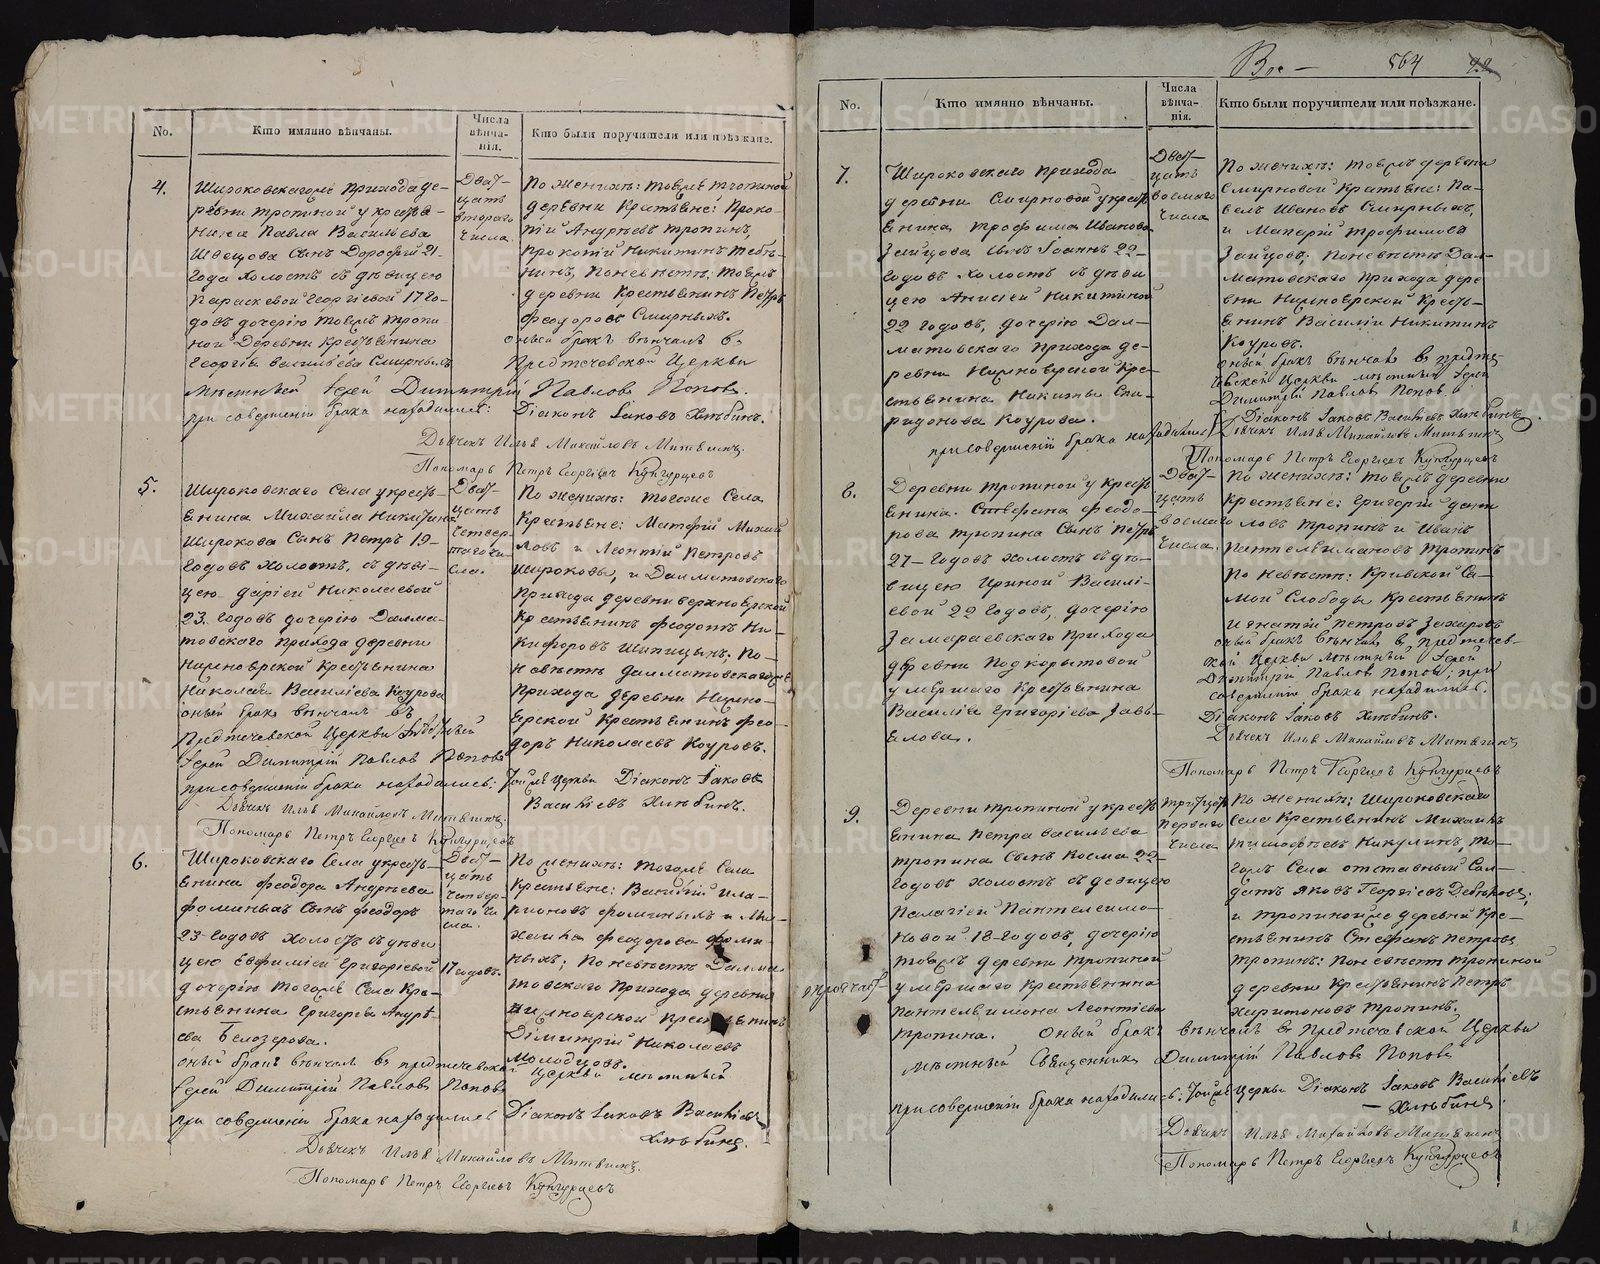 No.
Кто имянно вѣнчаны.
Числа вѣнча-
нiя.
Кто были поручители или поѣзжане.
4.
Широковскагоже прихода де-
ревни тропиной у кресть-
янина Павла Васильева
Швецова сынъ Дорофей 21-
года холостъ съ дѣвицею
Параскевой Георгіевой 17 го-
довъ дочерію тояжъ тропи-
ной Деревни крестьянина
Георгія васильева Смирныхъ
Двад-
цать
втораго
числа
По женихѣ: тояжъ тропиной
деревни Крестьяне: Проко-
пій Андрѣевъ тропинъ,
Прокопій Никитинъ
По невѣстѣ: тояжъ
деревни Крестьянинъ Петръ
Феодоровъ Смирныхъ.
оный бракъ вѣнчалъ въ
Предтечевской Церкви
мѣстный Іерей Димитрій Павловъ Поповъ.
при совершеніи брака находились: Діаконъ Іаковъ Хлѣбинъ.
Дьячекъ Илья Михайловъ Митягинъ.
Пономарь Петръ Георгіевъ Кунгурцевъ
5.
Широковскаго Села у кресть-
янина Михаила Никитина
Широкова Сынъ Петръ 19-
годовъ холостъ, съ дѣви-
цею дарьей Николаевой
23. годовъ дочерію Далма-
товскаго прихода деревни
Нижноярской Крестьянина
Николая Василіева Коурова
оный бракъ вѣнчалъ въ
Предтечевской Церкви
Іерей Димитрій Павловъ Поповъ
при совершеніи брака находились: Тойже церкви Діаконъ Іаковъ
Василіевъ Хлѣбинъ.
Дьячекъ Илья Михайловъ Митягинъ.
Пономарь Петръ Георгіевъ Кунгурцевъ
Двад-
цать
Четвер-
таго чи-
сла.
По женихѣ: тогоже Села
Крестьяне: Матфей Михай-
ловъ и Леонтій Петровъ
Широковы, и Далматовскаго
Прихода деревни верхноярской
Крестьянинъ Феодотъ Ни-
кифоровъ Шипицынъ; По-
невѣстѣ Далматовскагоже
Прихода деревни Нижно-
ярской Крестьянинъ Фео-
доръ Николаевъ Коуровъ.
6.
Широковскаго Села у кресть-
янина Феодора Андрѣева
Фоминыхъ Сынъ Феодоръ
23-годовъ холостъ съ дѣви
цею Евфиміей Григоріевой 17 годовъ.
дочерію тогожъ Села Кре-
стьянина Григорія Андрѣ-
ева Белозерова.
оный бракъ вѣнчалъ въ предтечевской Церкви мѣстный
Іерей Димитрій Павловъ Поповъ
при совершеніи брака находились Діаконъ Іаковъ Василіевъ
Хлѣбинъ.
Дьячекъ Илья Михайловъ Митягинъ.
Пономарь Петръ Георгіевъ Кунгурцевъ
Двад-
цать
Четвер-
таго чи-
сла.
По женихѣ: тогожъ Села
Крестьяне: Василій Ила-
ріоновъ Фоминыхъ и Ми-
хайла Феодорова Фоми-
ныхъ; По невѣстѣ Далма-
товскаго Прихода деревни
Нижноярской Крестьянинъ
Димитрій Николаевъ
Молодцовъ.
564
No.
Кто имянно вѣнчаны.
Числа
вѣнча-
нiя.
Кто были поручители или поѣзжане.
7.
Широковскаго прихода
деревни Смирновой у кресть
янина трофима Иванова
Зайцова Сынъ Іоаннъ 22-
годовъ холостъ съ дѣви
цею Анисіей Никитиной
22 годовъ, дочерію Дал-
матовскаго прихода де-
ревни Нижноярской Кре-
стьянина Никиты Спи-
ридонова Коурова.
при совершеніи брака находились
Двад-
цать
восмаго
Числа
По женихѣ: тояжъ деревни
Смирновой Крестьяне: Па-
велъ Ивановъ Смирныхъ,
и Макарій трофимовъ
Зайцовъ; По невѣстѣ: Дал-
матовскаго прихода дере
вни Нижноярской Кресть-
янинъ Василій Никитинъ
Коуровъ.
оный бракъ вѣнчалъ въ предте-
чевской Церкви мѣстный Іерей
Димитрій Павловъ Поповъ.
Діаконъ Іаковъ Василіевъ Хлѣбинъ.
Дьячекъ Илья Михайловъ Митягинъ
Пономарь Петръ Георгіевъ Кунгурцевъ
8.
Деревни тропиной у кресть
янина Феодо-
рова тропина Сынъ Петръ
27- годовъ холостъ съ дѣ-
вицею Ириной Василі-
евой 22 годовъ, дочерію
Замараевскаго прихода
деревни Подкорытовой
умершаго Крестьянина
Василія Григоріева Завь-
ялова.
Двад-
цать
восмаго
Числа.
По женихѣ: тояжъ деревни
Крестьяне: Григорій дани
ловъ тропинъ и Иванъ
Пантелѣимановъ тропинъ
По невѣстѣ: Кривской Са-
мой Слободы Крестьянинъ
Игнатій Петровъ Захаровъ
оный бракъ вѣнчалъ въ предтечев-
ской Церкви мѣстный Іерей
Димитрій Павловъ Поповъ; при
совершеніи брака находились.
Діаконъ Іаковъ Хлѣбинъ.
Дьячекъ Илья Михайловъ Митягинъ
Пономарь Петръ Георгіевъ Кунгурцевъ
9.
Деревни тропиной у кресть
янина Петра васильева
тропина Сынъ Козма 22-
годовъ холостъ съ девицею
Палагіей Пантелеимо-
новой 18-годовъ, дочерію
тояжъ деревни тропиной
умершаго Крестьянина
Пантелѣимона Леонтіева
тропина. Оный бракъ вѣнчалъ въ Предтечевской Церкви
мѣстный Священникъ Димитрій Павловъ Поповъ
при совершеніи брака находились: Тойже церкви Діаконъ Іаковъ Василіевъ
Хлѣбинъ.
Дьячекъ Илья Михайловъ Митягинъ
Пономарь Петръ Георгіевъ Кунгурцевъ
тритцать
Перваго
Числа
По женихѣ: Широковскаго
Села Крестьянинъ Михаилъ
Тимофѣевъ Никулинъ, то-
гожъ Села отставный Сол-
датъ Яковъ Георгіевъ
и тропинойже деревни Кре-
стьянинъ Стефанъ Петровъ
тропинъ: По невѣстѣ тропиной
деревни Крестьянинъ Петръ
Харитоновъ тропинъ.
METRIKI.GASO-URAL.RU